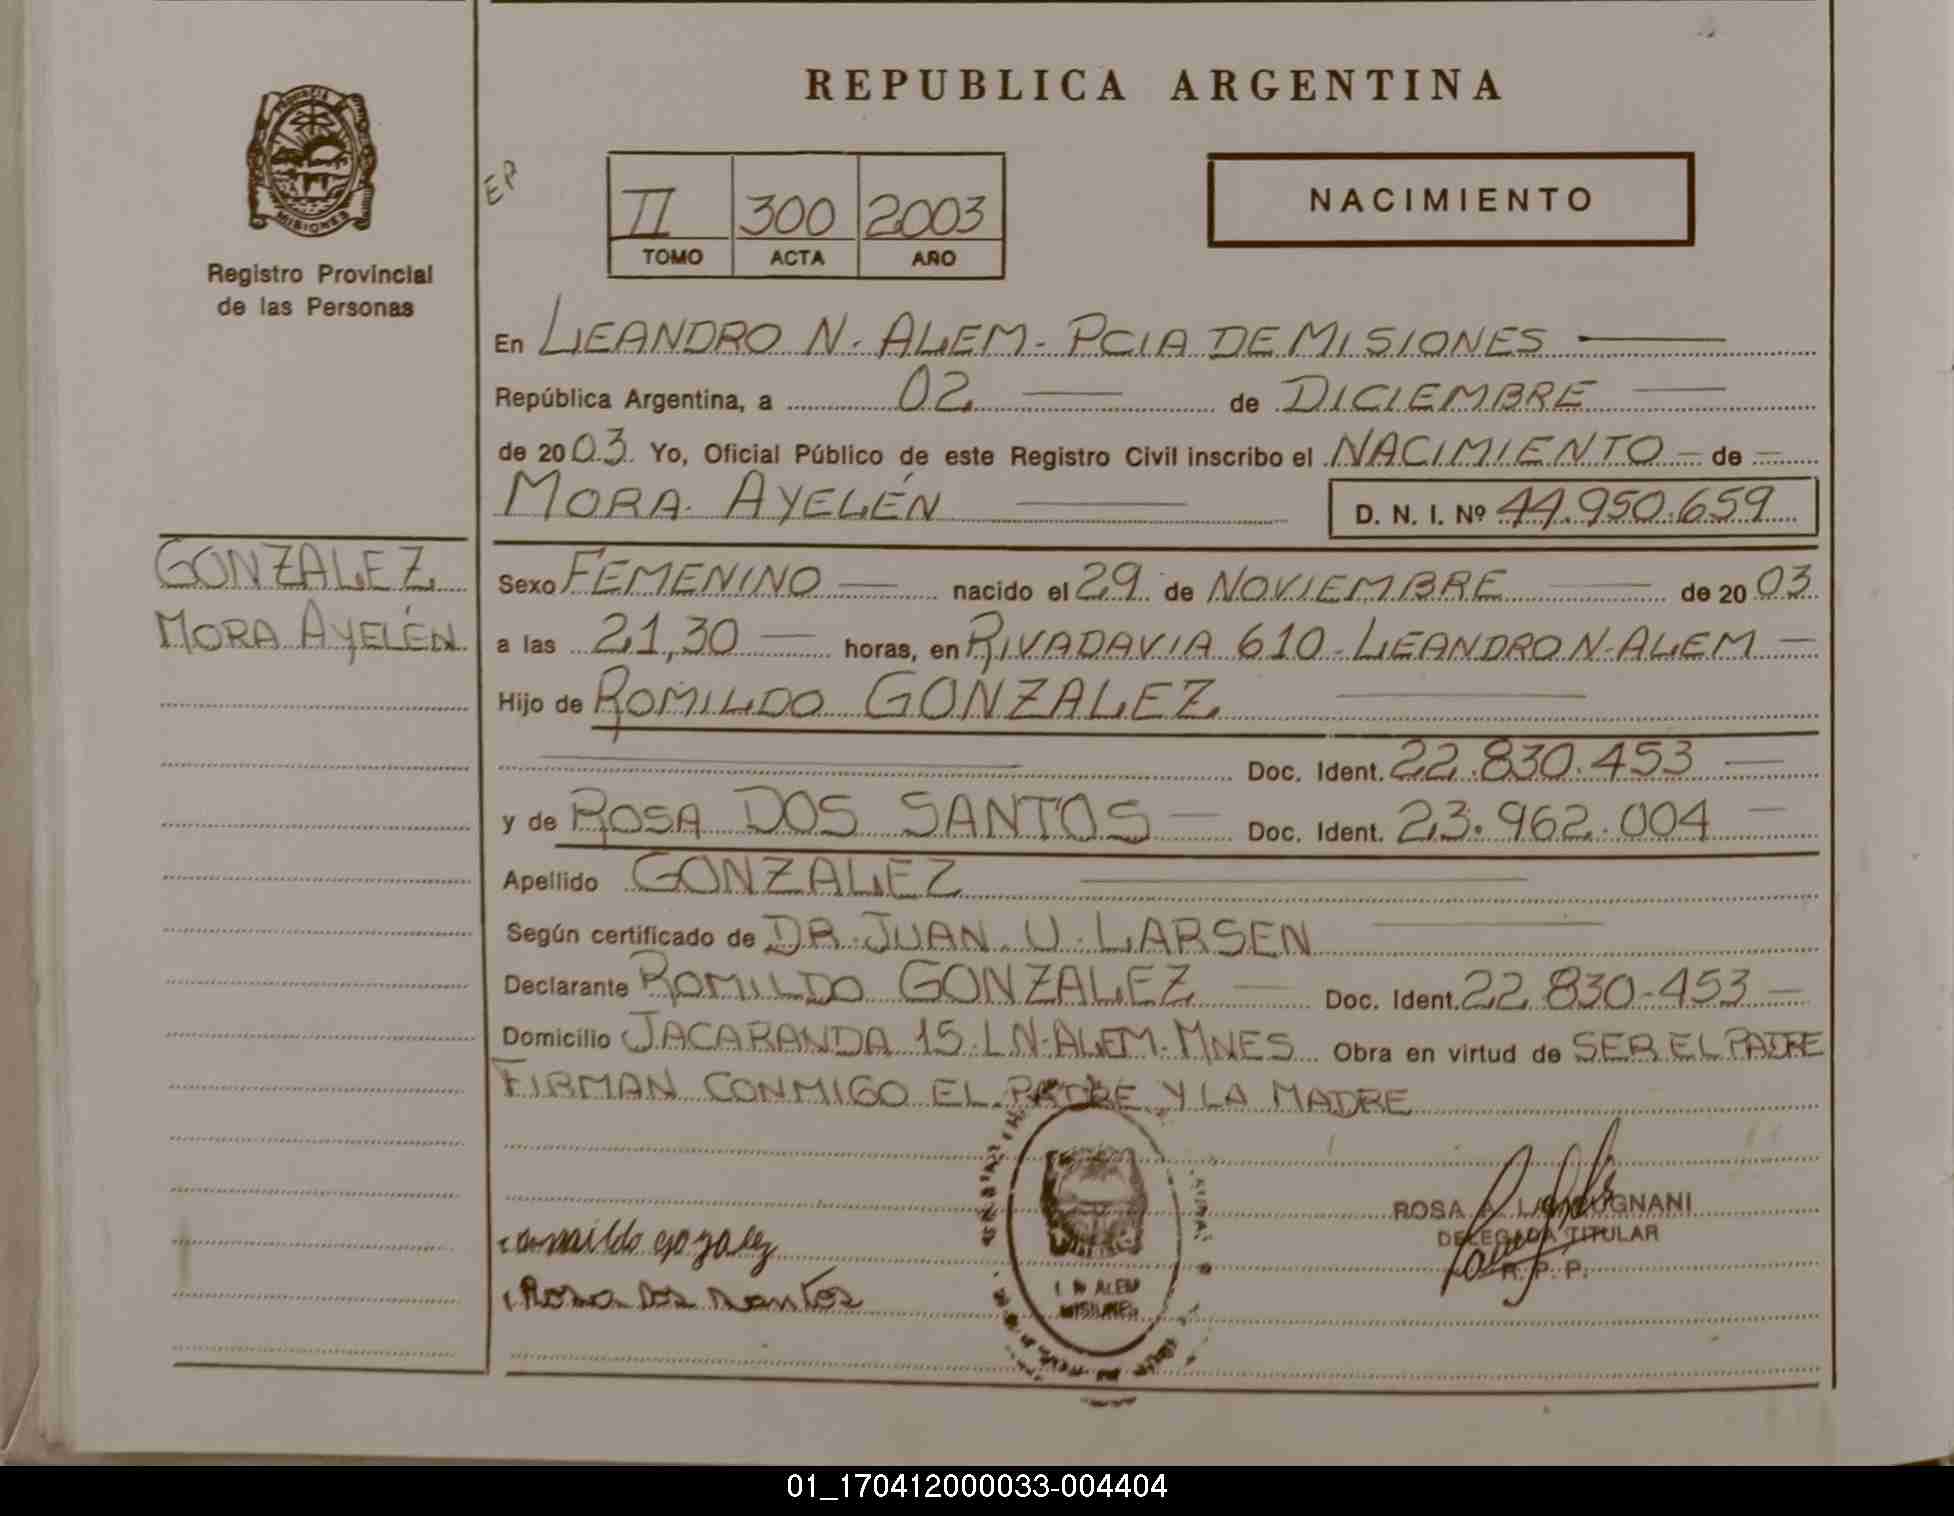 REPUBLICA ARGENTINA
PROVINCIA DE
MISIONES
Registro Provincial
de las Personas
EP
II 300 2003
TOMO ACTA AÑO
NACIMIENTO
En LEANDRO N. ALEM - PCIA DE MISIONES
República Argentina, a 02 de DICIEMBRE
de 2003 Yo, Oficial Público de este Registro Civil inscribo el NACIMIENTO de
MORA AYELÉN D. N. I. Nº 44.950.659
GONZALEZ
MORA AYELÉN
Sexo FEMENINO nacido el 29 de NOVIEMBRE de 2003
a las 21,30 horas, en RIVADAVIA 610 - LEANDRO N. ALEM
Hijo de ROMILDO GONZALEZ
Doc. Ident. 22.830.453
y de ROSA DOS SANTOS Doc. Ident. 23.962.004
Apellido GONZALEZ
Según certificado de DR. JUAN U. LARSEN
Declarante ROMILDO GONZALEZ Doc. Ident. 22.830.453
Domicilio JACARANDA 15. L N. ALEM. MNES Obra en virtud de SER EL PADRE
FIRMAN CONMIGO EL PADRE Y LA MADRE
ROSA A. GNANI
DELEGADA TITULAR
R. P. P.
gozalez
Rosa Dos Santos
L N ALEM
MISIONES
01_170412000033-004404